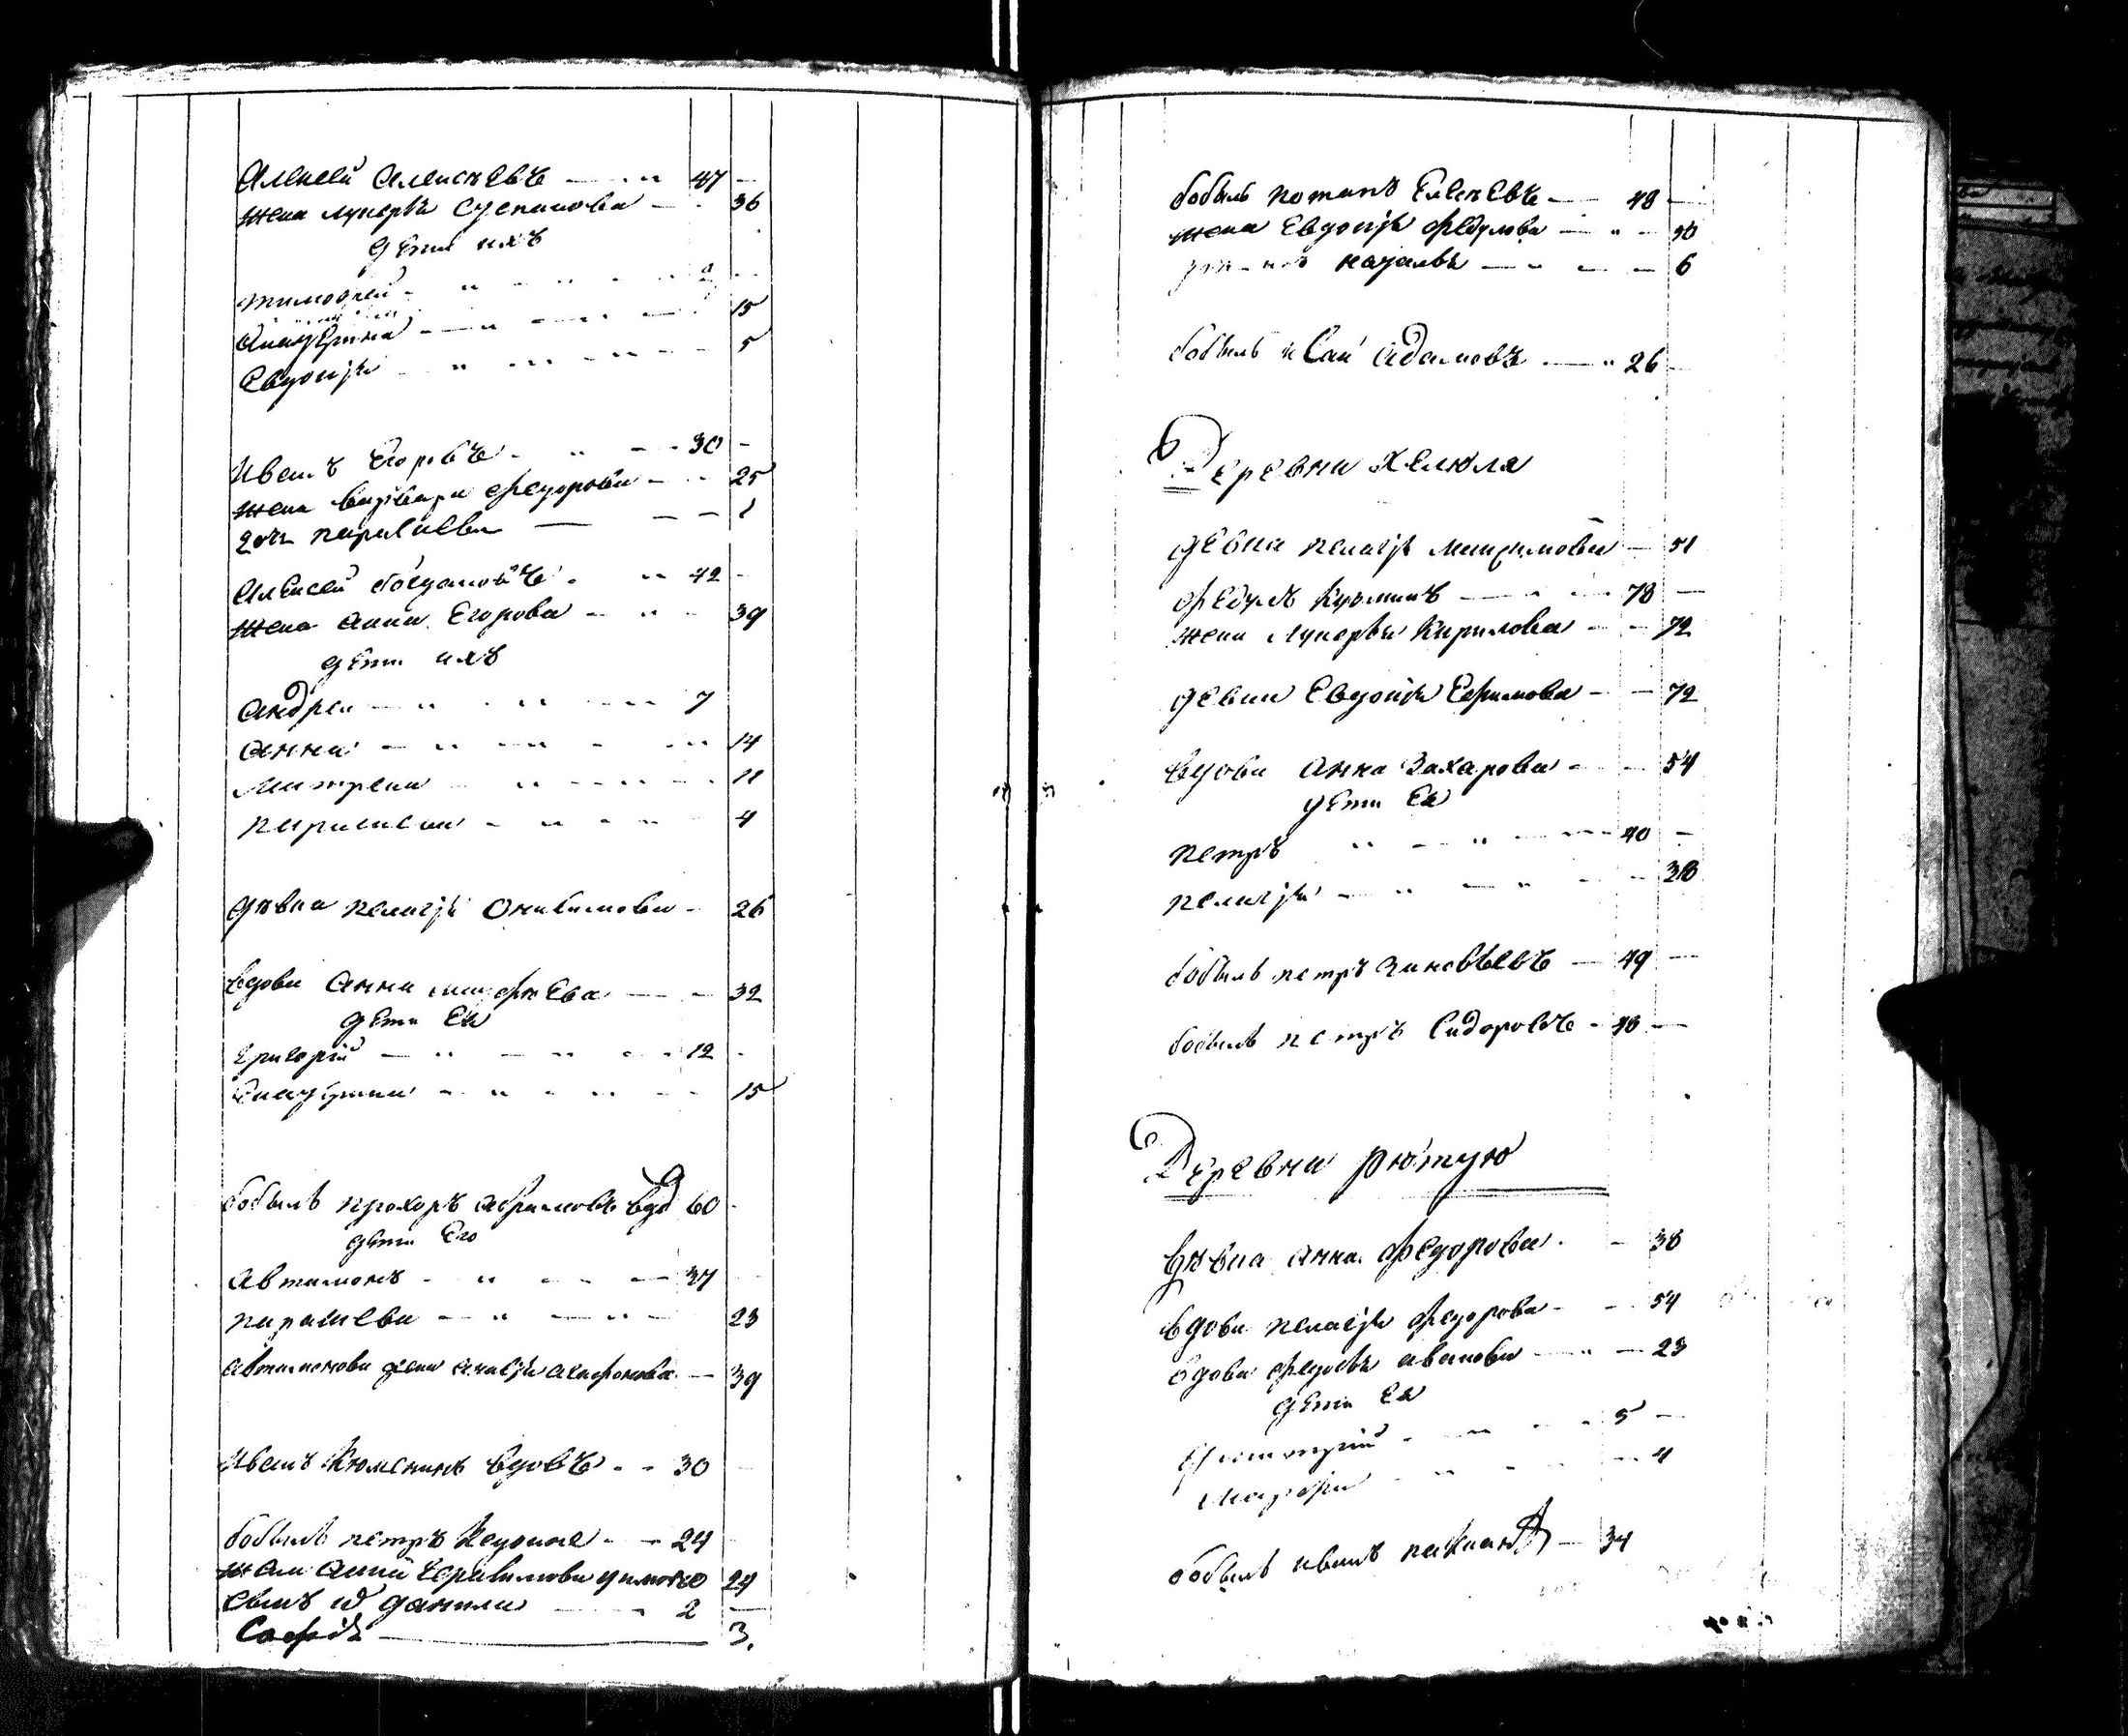 Алексей Алексѣевъ 47
жена лукерья Степанова 36
дети ихъ
тимофей
Екатерина 15
Евдокія 5
Иванъ Егоровъ 30
жена варвара федорова 25
дочь парасковья 1
Алексей богдановъ 42
жена Анна Егорова 39
дети ихъ
Андреи 7
Анна 14
Матрена 11
парасковия 4
дѣвка пелагія 26
вдова Анна 32
дети Ея
григорій 12
Екатерина 15
бобыль прохоръ Абрамовъ вдо 60
дети Его
Автамонъ 37
парасковья 23
Автамонова жена 39
Иванъ вдовъ 30
бобыль петръ 24
жена Анна 24
сынъ данила 2
Софія 3.
бобыль потапъ Елисѣевъ 48
жена Евдокія Федулова 50
6
бобыль исаи Адамовъ 26
Деревни Хелюля
девка пелагія Максимова 51
федулъ Кузминъ 78
жена лукерья Кирилова 72
девка Евдокія Ефимова 72
вдова Анна Захарова 54
дети Ея
петръ 40
пелагія 38
бобыль петръ зиновьевъ 49
бобыль петръ Сидоровъ 40
Деревни рютую
дѣвка Анна федорова 38
вдова пелагія федорова 54
вдова федосья иванова 23
дети Ея
дмитрій 5
марфа 4
бобыль иванъ 34